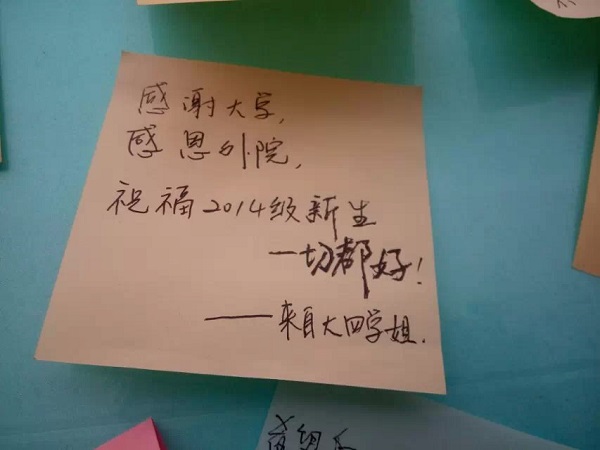 感谢大学,
感恩外院,
祝福2014级新生
一切都好!
——来自大四学姐.